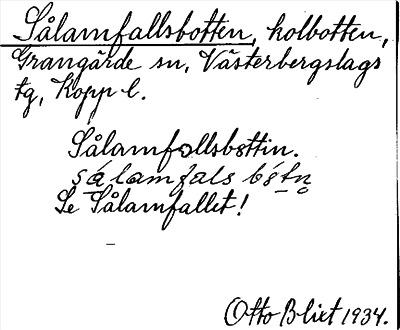 Sålamfallsbotten, holbotten,
Grangärde sn, Västerbergslags
tg, Kopp l.
Sålamfallsbottin.
Se Sålamfallet!
Otto Blixt 1934.